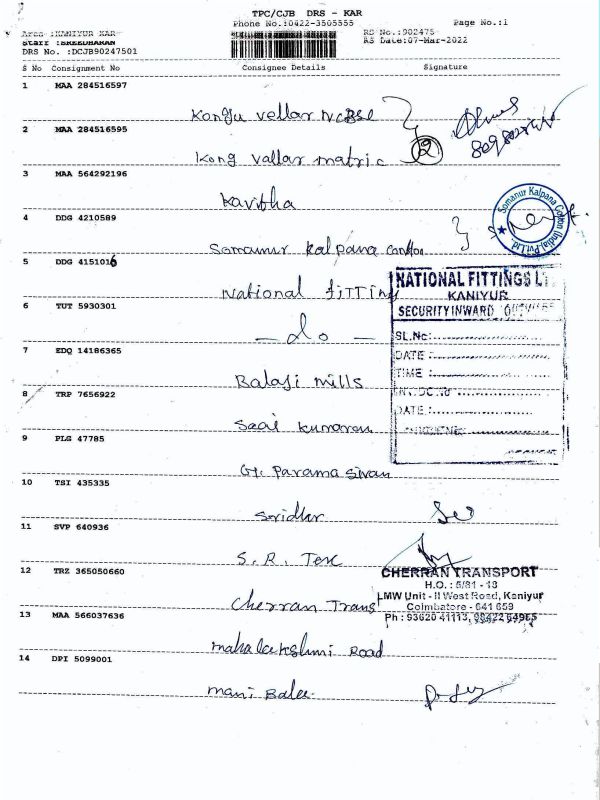 TPC/CJB DRS - KAR
Phone No.:0422-3505555
Page No.:1
Area :KANIYUR KAR
Staff :SREEDHARAN
DRS No. :DCJB90247501
RS No.:902475
RS Date:07-Mar-2022
S No Consignment No Consignee Details Signature
1 MAA 284516597
Kongu vellar NCBSE
2 MAA 284516595
2
Kong vallar matric
3 MAA 564292196
Kavitha
4 DDG 4210589
Somanur Kalpana Cotton (India) Pvt. Ltd.
Somanur kalpana cotton
5 DDG 4151016
National fitting
NATIONAL FITTINGS LT
KANIYUR
SECURITY INWARD
SL.No:
DATE :
TIME :
DATE :
6 TUT 5930301
- do -
7 EDQ 14186365
Balaji mills
8 TRP 7656922
Saai kumaran
9 PLG 47785
Gt. Paramasivan
10 TSI 435335
Sridhar
11 SVP 640936
S. R. Tex
12 TRZ 365050660
Cherran Trans
CHERRAN TRANSPORT
H.O. : 5/81 - 13
LMW Unit - II West Road, Kaniyur
Coimbatore - 641 659
Ph : 93620 41113, 98422 64965
13 MAA 566037636
mahalakshmi Road
14 DPI 5099001
mani Balee